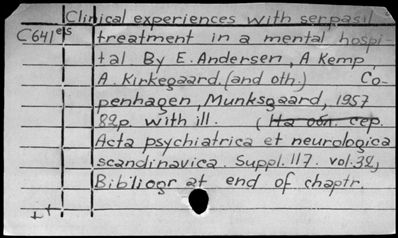 Clinical experiences with serpasil
C641es treatment in a mental hospi-
tal By E. Andersen, A Kemp,
A. Kirkegaard. (and oth.) Co-
penhagen, Munksgaard, 1957
82p. with ill. (На обл. сер.
Acta psychiatrica et neurologica
scandinavica. Suppl. 117. vol. 32,
Bibliogr at end of chaptr.